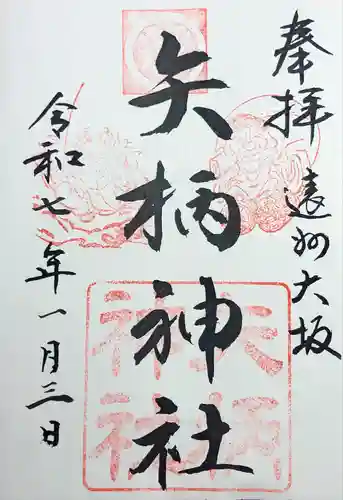 奉拝 遠州大坂
矢柄神社
令和七年一月三日
矢柄
神社